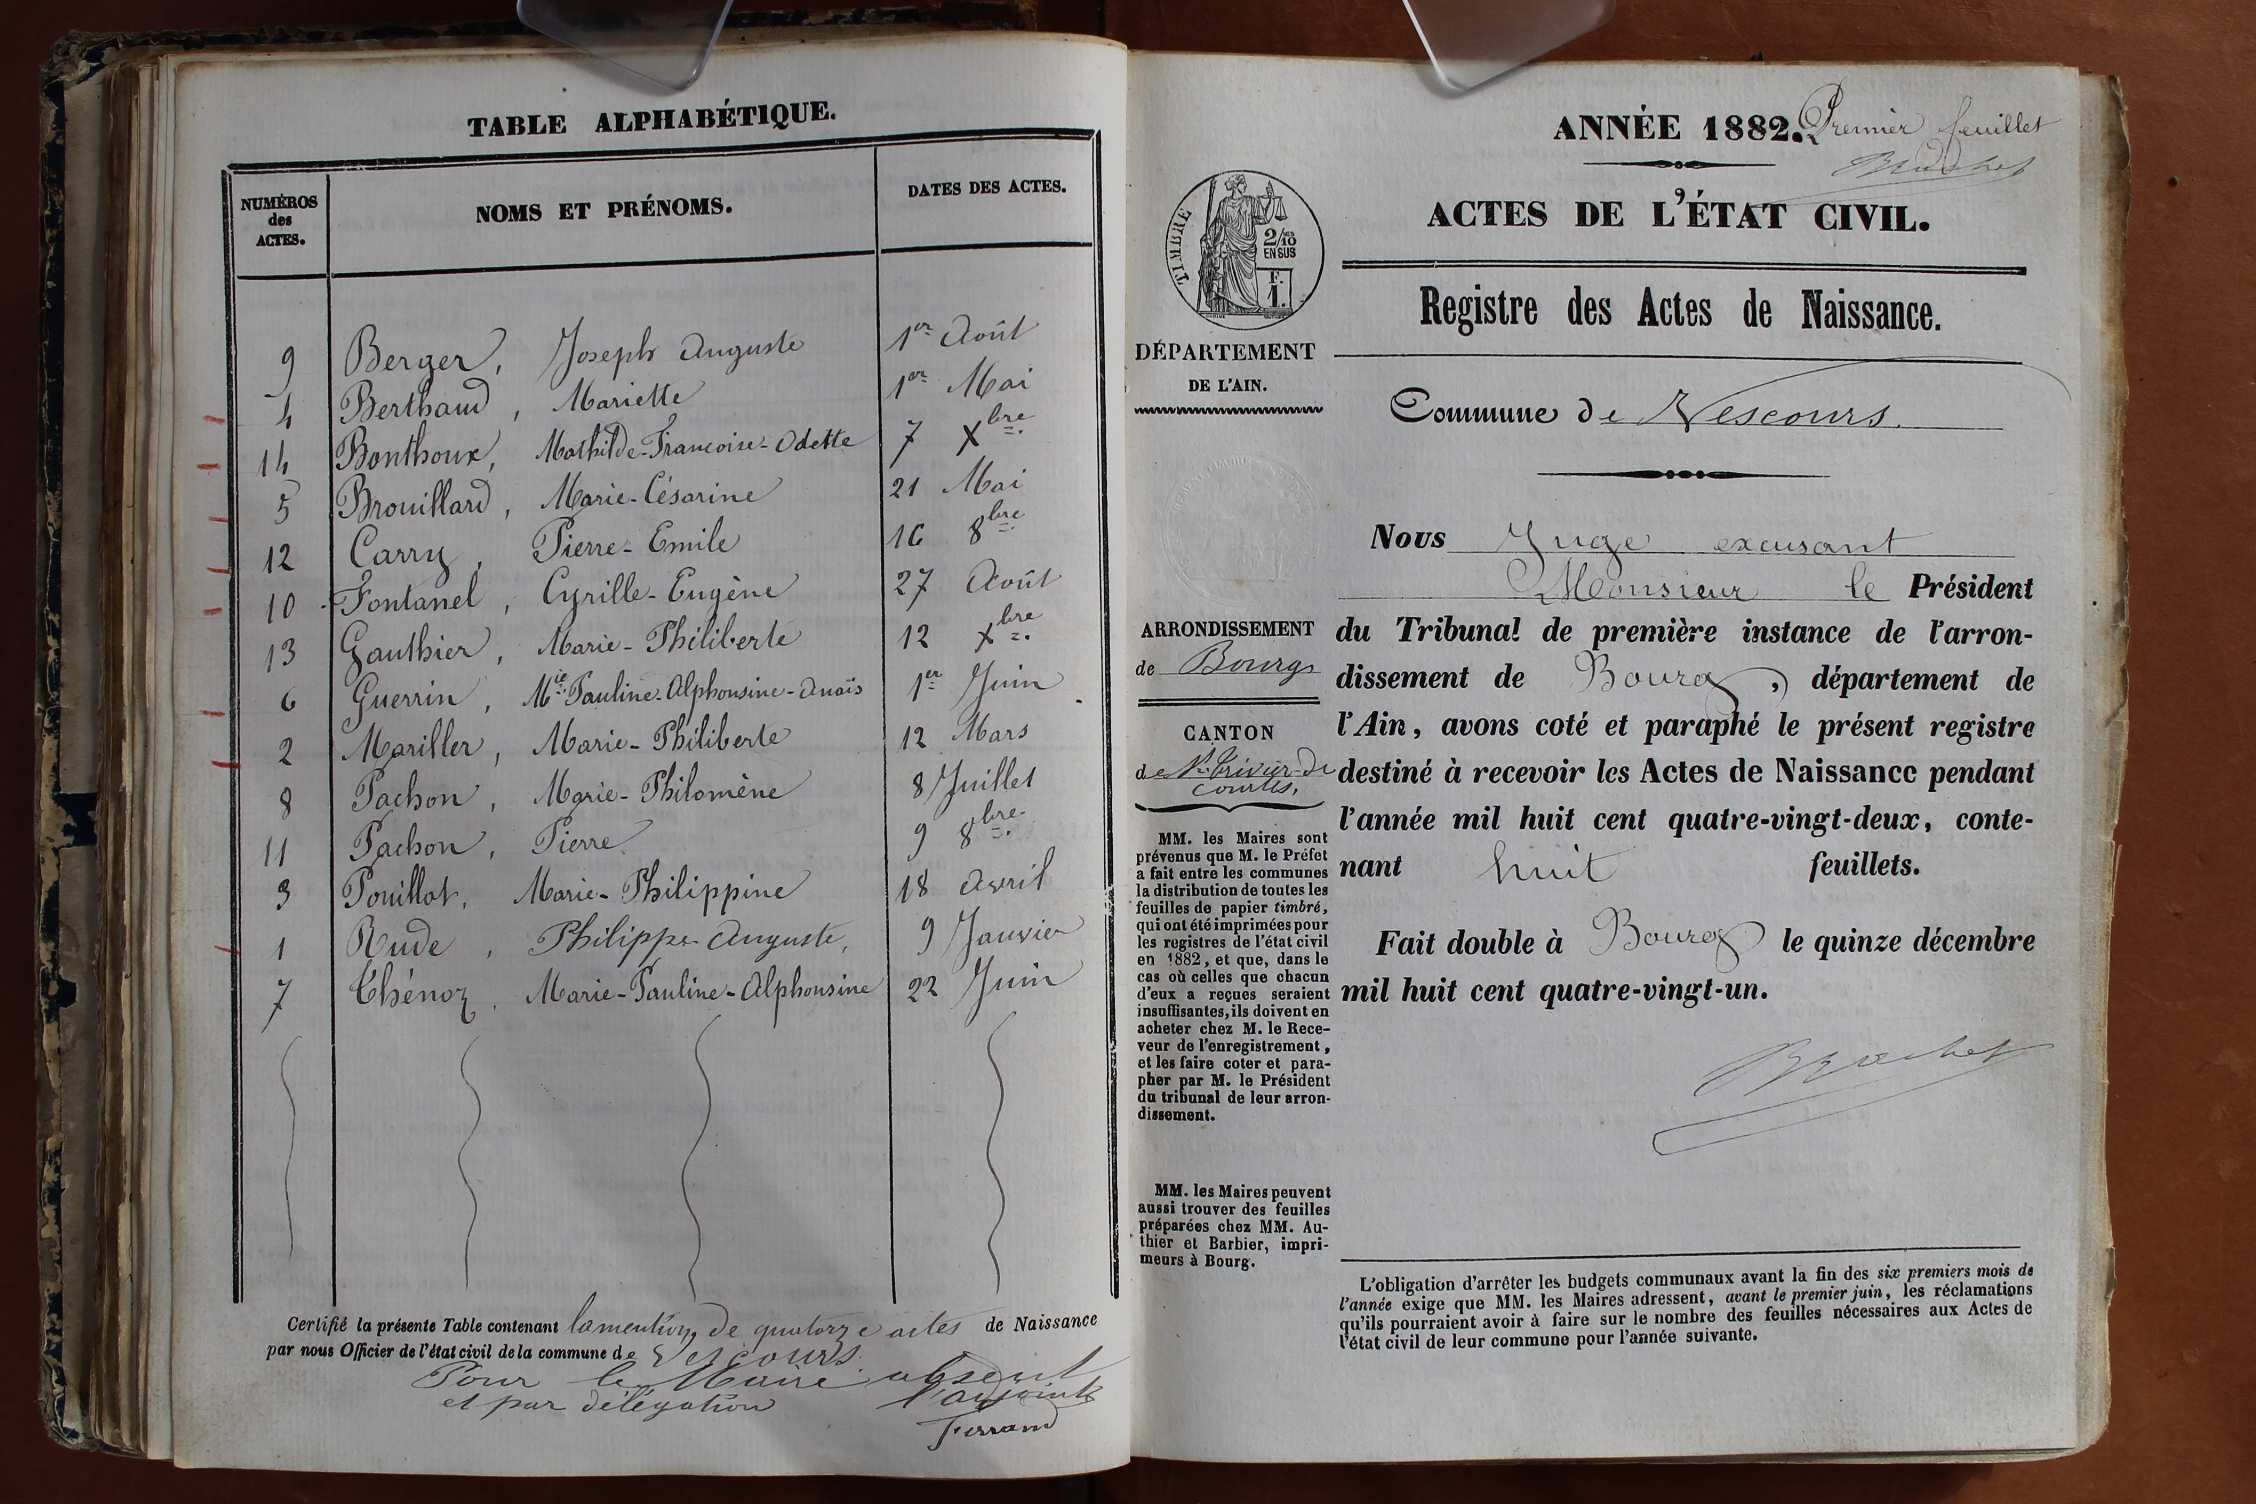 TABLE ALPHABÉTIQUE.
NUMÉROS des ACTES. NOMS ET PRÉNOMS. DATES DES ACTES.
9 Berger, Joseph Auguste 1er Août
4 Berthaud, Mariette 1er Mai
14 Bonthoux, Mathilde-Francoise-Odette 7 Xbre
5 Brouillard, Marie-Césarine 21 Mai
12 Carry, Pierre-Emile 16 8bre
10 Fontanel, Cyrille-Eugène 27 Août
13 Gauthier, Marie-Philiberte 12 Xbre
6 Guerrin, Mie Pauline-Alphonsine-Anaïs 1er Juin
2 Mariller, Marie-Philiberte 12 Mars
8 Pachon, Marie-Philomène 8 Juillet
11 Pachon, Pierre 9 8bre
3 Pouillat, Marie-Philippine 18 Avril
1 Rude, Philippe-Auguste, 9 Janvier
7 Chénoz, Marie-Pauline-Alphonsine 22 Juin
Certifié la présente Table contenant la mention de quatorze actes de Naissance
par nous Officier de l'état civil de la commune de Vescours.
Pour le Maire absent
et par délégation l'adjoint
Ferrand
ANNÉE 1882. Premier feuillet
Brochet
ACTES DE L'ÉTAT CIVIL.
TIMBRE
2/10
EN SUS
F.
1.
Registre des Actes de Naissance.
DÉPARTEMENT
DE L'AIN.
Commune de Vescours.
ARRONDISSEMENT
de Bourg
CANTON
de St Trivier-de
Courtes.
MM. les Maires sont
prévenus que M. le Préfet
a fait entre les communes
la distribution de toutes les
feuilles de papier timbré,
qui ont été imprimées pour
les registres de l'état civil
en 1882, et que, dans le
cas où celles que chacun
d'eux a reçues seraient
insuffisantes, ils doivent en
acheter chez M. le Rece-
veur de l'enregistrement,
et les faire coter et para-
pher par M. le Président
du tribunal de leur arron-
dissement.
MM. les Maires peuvent
aussi trouver des feuilles
préparées chez MM. Au-
thier et Barbier, impri-
meurs à Bourg.
Nous Juge excusant
Monsieur le Président
du Tribunal de première instance de l'arron-
dissement de Bourg, département de
l'Ain, avons coté et paraphé le présent registre
destiné à recevoir les Actes de Naissance pendant
l'année mil huit cent quatre-vingt-deux, conte-
nant huit feuillets.
Fait double à Bourg le quinze décembre
mil huit cent quatre-vingt-un.
Brochet
L'obligation d'arrêter les budgets communaux avant la fin des six premiers mois de
l'année exige que MM. les Maires adressent, avant le premier juin, les réclamations
qu'ils pourraient avoir à faire sur le nombre des feuilles nécessaires aux Actes de
l'état civil de leur commune pour l'année suivante.